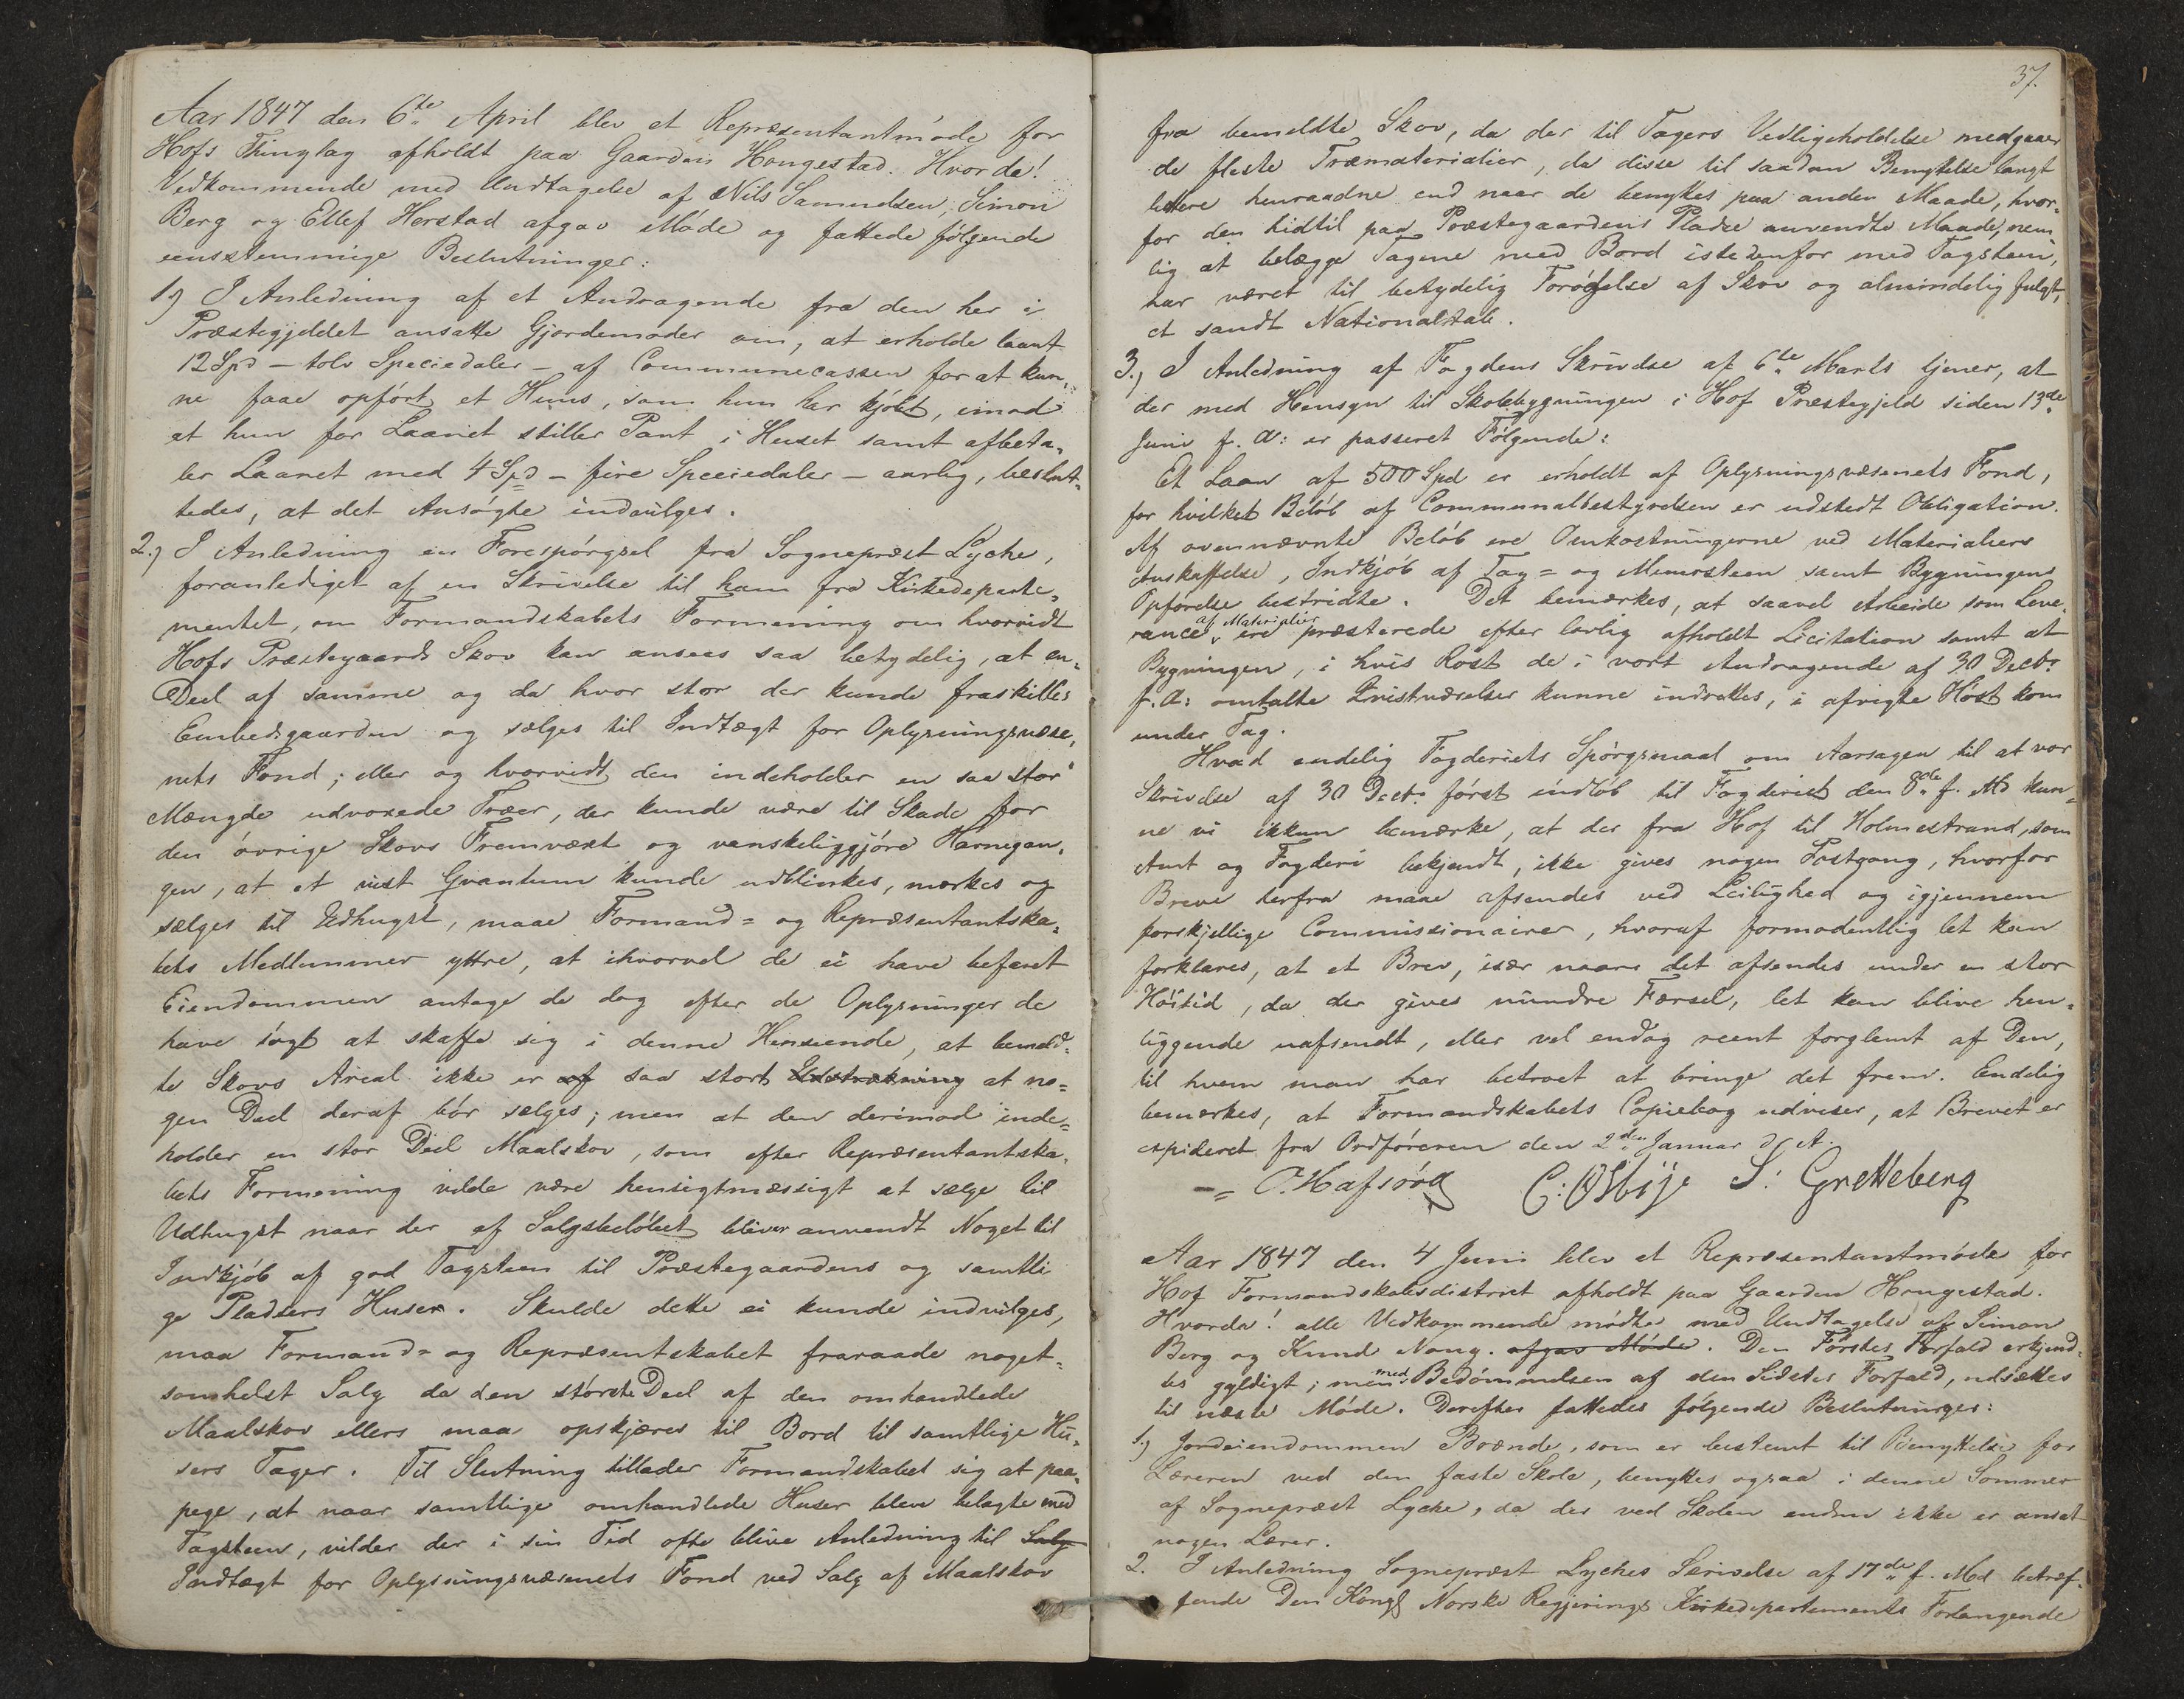 Aar 1847 den 6te April blev et Repræsentantmøde for
Hofs Thinglag afholdt paa Gaarden Hougestad. Hvorda!
Vedkommende med Undtagelse af Nils Samuelsen, Simon
Berg og Ellef Herstad afgav Møde og fattede følgende
eensstemmige Beslutninger:
1) I Anledning af et Andragende fra den her i
Præstegjeldet ansatte Gjordemoder om, at erholde laant
12 Spd – tolv Speciedaler – af Communecassen for at kun-
ne faae opført et Huus, som hun har kjøbt, imod
at hun for Laanet stiller Pant i Huset samt afbeta-
ler Laanet med 4 Spd – fire Speciedaler – aarlig, beslut-
tedes, at det Ansøgte indvilges.
2.) I Anledning en Forespørgsel fra Sognepræst Lyche,
foranlediget af en Skrivelse til ham fra Kirkedeparte-
mentet, om Formandskabets Formening om hvorvidt
Hofs Præstegaards Skov kan ansees saa betydelig, at en
Deel af samme og da hvor stor der kunde fraskilles
Embedsgaarden og sælges til Indtægt for Oplysningsvæse-
nets Fond; eller og hvorvidt den indeholder en saa stor
Mængde udvoxede Træer, der kunde være til Skade for
den øvrige Skovs Fremvæxt og vanskeliggjøre Havnegan-
gen, at et vist Qvantum kunde udblinkes, mærkes og
sælges til Udhugst, maae Formand= og Repræsentantska-
bets Medlemmer yttre, at ihvorvel de ei have befaret
Eiendommen antage de dog efter de Oplysninger de
have søgt at skaffe sig i denne Henseende, at bemeld-
te Skovs Areal ikke er af saa stort Udstrækning at no=
gen Deel deraf bør sælges; men at den derimod inde=
holder en stor Deel Maalskov, som efter Repræsentantska-
bets Formening vilde være hensigtmæssigt at sælge til
Udhugst naar der af Salgsbeløbet bliver anvendt Noget til
Indkjøb af god Tagsteen til Præstegaardens og samtli
ge Pladsers Huser. Skulde dette ei kunde indvilges,
maa Formand= og Repræsentskabet fraraade noget=
somhelst Salg da den største Deel af den omhandlede
Maalskov ellers maa opskjæres til Bord til samtlige Hu-
sers Tager. Til Slutning tillader Formandskabet sig at paa-
pege, at naar samtlige omhandlede Huser bleve belagte med
Tagsteen, vilder der i sin Tid ofte blive Anledning til Salg
Indtægt for Oplysningsvæsenets Fond ved Salg af Maalskov
37.
fra bemeldte Skov, da der til Tagers Vedligeholdelse medgaaer
de fleste Træmaterialier, da disse til saadan Benyttelse langt
lettere henraadne end naar de benyttes paa anden Maade, hvor-
for den hidtil paa Præstegaardens Pladse anvendte Maade, nem
lig at belægge Tagene med Bord istedenfor med Tagsteen,
har været til betydelig Forødelse af Skov og almindelig fulgt,
et sandt Nationaltab.
3.) I Anledning af Fogdens Skrivelse af 6te Marts tjener, at
der med Hensyn til Skolebygningen i Hof Præstegjeld siden 13de
Juni f. A: er passeret Følgende:
Et Laan af 500 Spd er erholdt af Oplysningsvæsenets Fond,
for hvilket Beløb af Communalbestyrelsen er udstedt Obligation.
Af ovennævnte Beløb ere Omkostningerne ved Materialiers
Anskaffelse, Indkjøb af Tag= og Muursteen samt Bygningens
Opførelse bestridte. Det bemærkes, at saavel Arbeide som Leve-
rance af Materialier ere præsterede efter lovlig afholdt Licitation samt at
Bygningen, i hvis Røst de i vort Andragende af 30 Decbr
f. A: omtalte Qvistværelser kunne indrettes, i afvigte Høst kom
under Tag.
Hvad endelig Fogderiets Spørgsmaal om Aarsagen til at vor
Skrivelse af 30 Decbr først indløb til Fogderiet den 8de f. Md kun-
ne vi ikkun bemærke, at der fra Hof til Holmestrand, som
Amt og Fogderi bekjendt, ikke gives nogen Postgang, hvorfor
Breve herfra maae afsendes ved Leilighed og igjennem
forskjellige Commissionairer, hvoraf formodentlig let kan
forklares, at et Brev, især naar det afsendes under en stor
Høitid, da der gives mindre Færsel, let kan blive hen-
liggende uafsendt, eller vel endog reent forglemt af Den,
til hvem man har betroet at bringe det frem. Endelig
bemærkes, at Formandskabets Copiebog udviser, at Brevet er
expideret fra Ordføreren den 2den Januar d. A.
O. Hafsørg C: Østbye S: Gretteberg
Aar 1847 den 4 Juni blev et Repræsentantmøde for
Hof Formandskabsdistrict afholdt paa Gaarden Hougestad.
Hvorda! alle Vedkommende mødte med Undtagelse af Simon
Berg og Knud Nøng. afgav Møde. Den Førstes Forfald erkjend-
tes gyldigt; men med Bedømmelsen af den Sidstes Forfald, udsættes
til næste Møde. Derefter fattedes følgende Beslutninger:
1.) Jordeiendommen Brænde, som er bestemt til Benyttelse for
Læreren ved den faste Skole, benyttes ogsaa i denne Sommer
af Sognepræst Lyche, da der ved Skolen endnu ikke er ansat
nogen Lærer.
2. I Anledning Sognepræst Lyches Skrivelse af 17de f. Md betref-
fende Den Kongl Norske Regjerings Kirkedepartements Forlangende